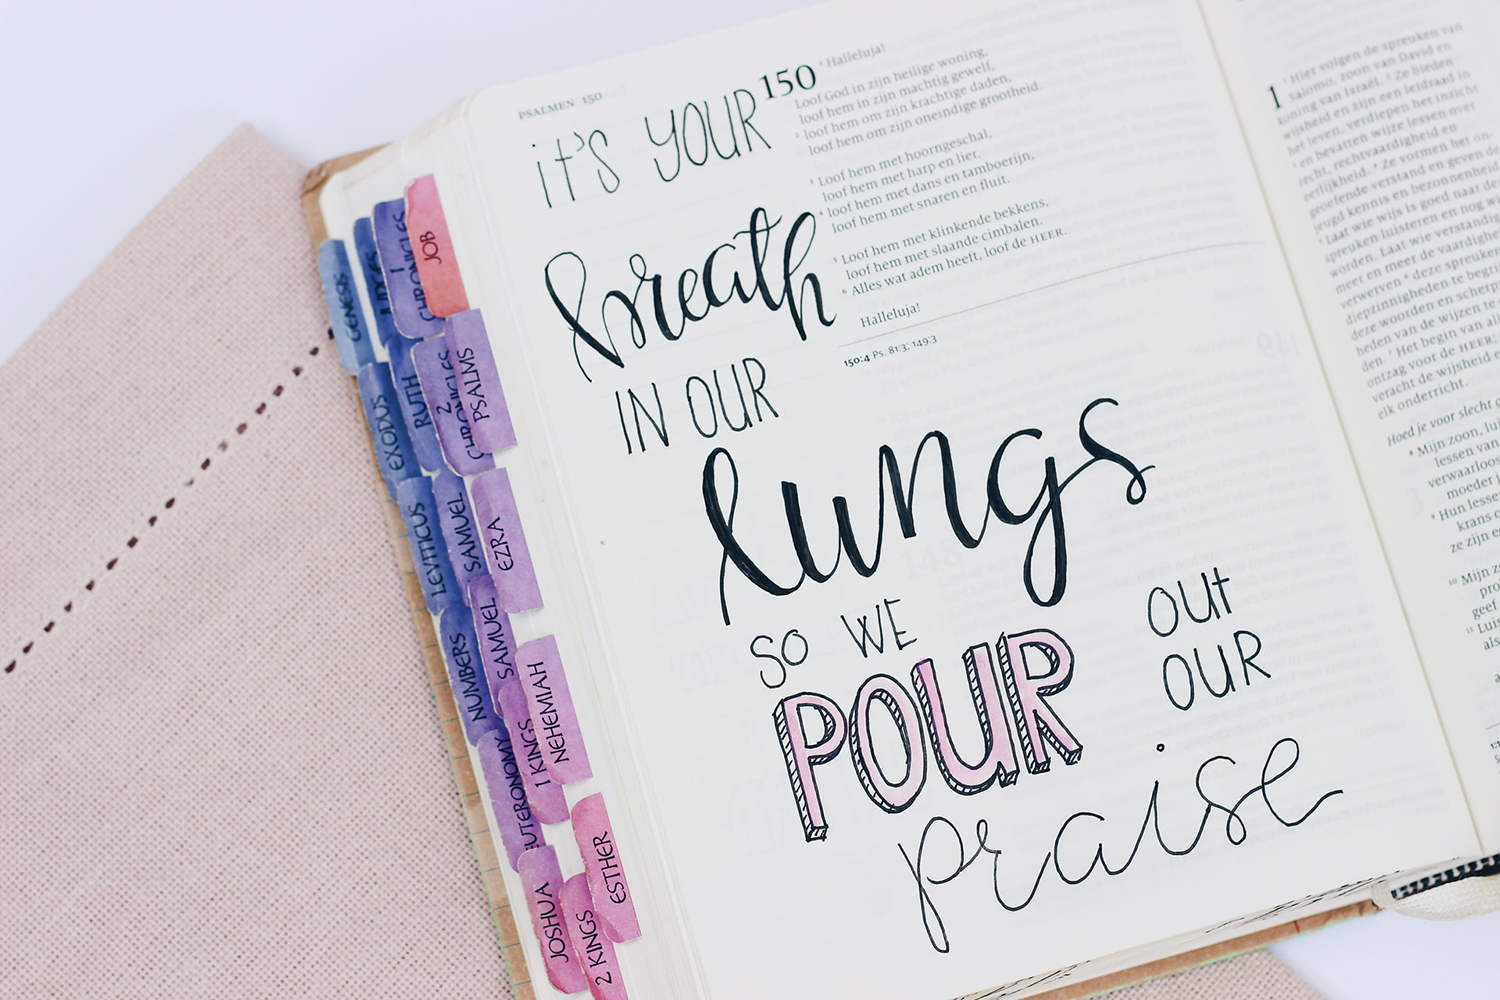 PSALMEN 150
it's YOUR
breath
IN OUR
lungs
SO WE
POUR
OUt
OUR
praise
150
¹ Halleluja!
Loof God in zijn heilige woning,
loof hem in zijn machtig gewelf,
² loof hem om zijn krachtige daden,
loof hem om zijn oneindige grootheid.
³ Loof hem met hoorngeschal,
loof hem met harp en lier,
⁴ loof hem met dans en tamboerijn,
loof hem met snaren en fluit.
⁵ Loof hem met klinkende bekkens,
loof hem met slaande cimbalen.
⁶ Alles wat adem heeft, loof de HEER.
Halleluja!
150:4 Ps. 81:3; 149:3
GENESIS
EXODUS
LEVITICUS
NUMBERS
UTERONOMY
JOSHUA
RUTH
SAMUEL
SAMUEL
1 KINGS
2 KINGS
1 CHRONICLES
2 CHRONICLES
EZRA
NEHEMIAH
ESTHER
JOB
PSALMS
1
¹ Hier volgen de spreuken van
Salomo, zoon van David en
koning van Israël. ² Ze bieden
wijsheid en zijn een leidraad in
het leven, verdiepen het inzicht
³ en bevatten wijze lessen over
recht, rechtvaardigheid en
eerlijkheid. ⁴ Ze vormen het on-
geoefende verstand en geven de
jeugd kennis en bezonnenheid
⁵ Laat wie wijs is goed naar de
spreuken luisteren en nog wi
worden. Laat wie verstandig
meer en meer de vaardighe
verwerven ⁶ deze spreuken
diepzinnigheden te begrij
deze woorden en scherp
heden van de wijzen te
den. ⁷ Het begin van alle
ontzag voor de HEER;
veracht de wijsheid e
elk onderricht.
Hoed je voor slecht g
⁸ Mijn zoon, lui
lessen van
verwaarloos
moeder j
⁹ Hun lesse
krans o
ze zijn e
¹⁰ Mijn z
pro
geef
¹¹ Luis
als